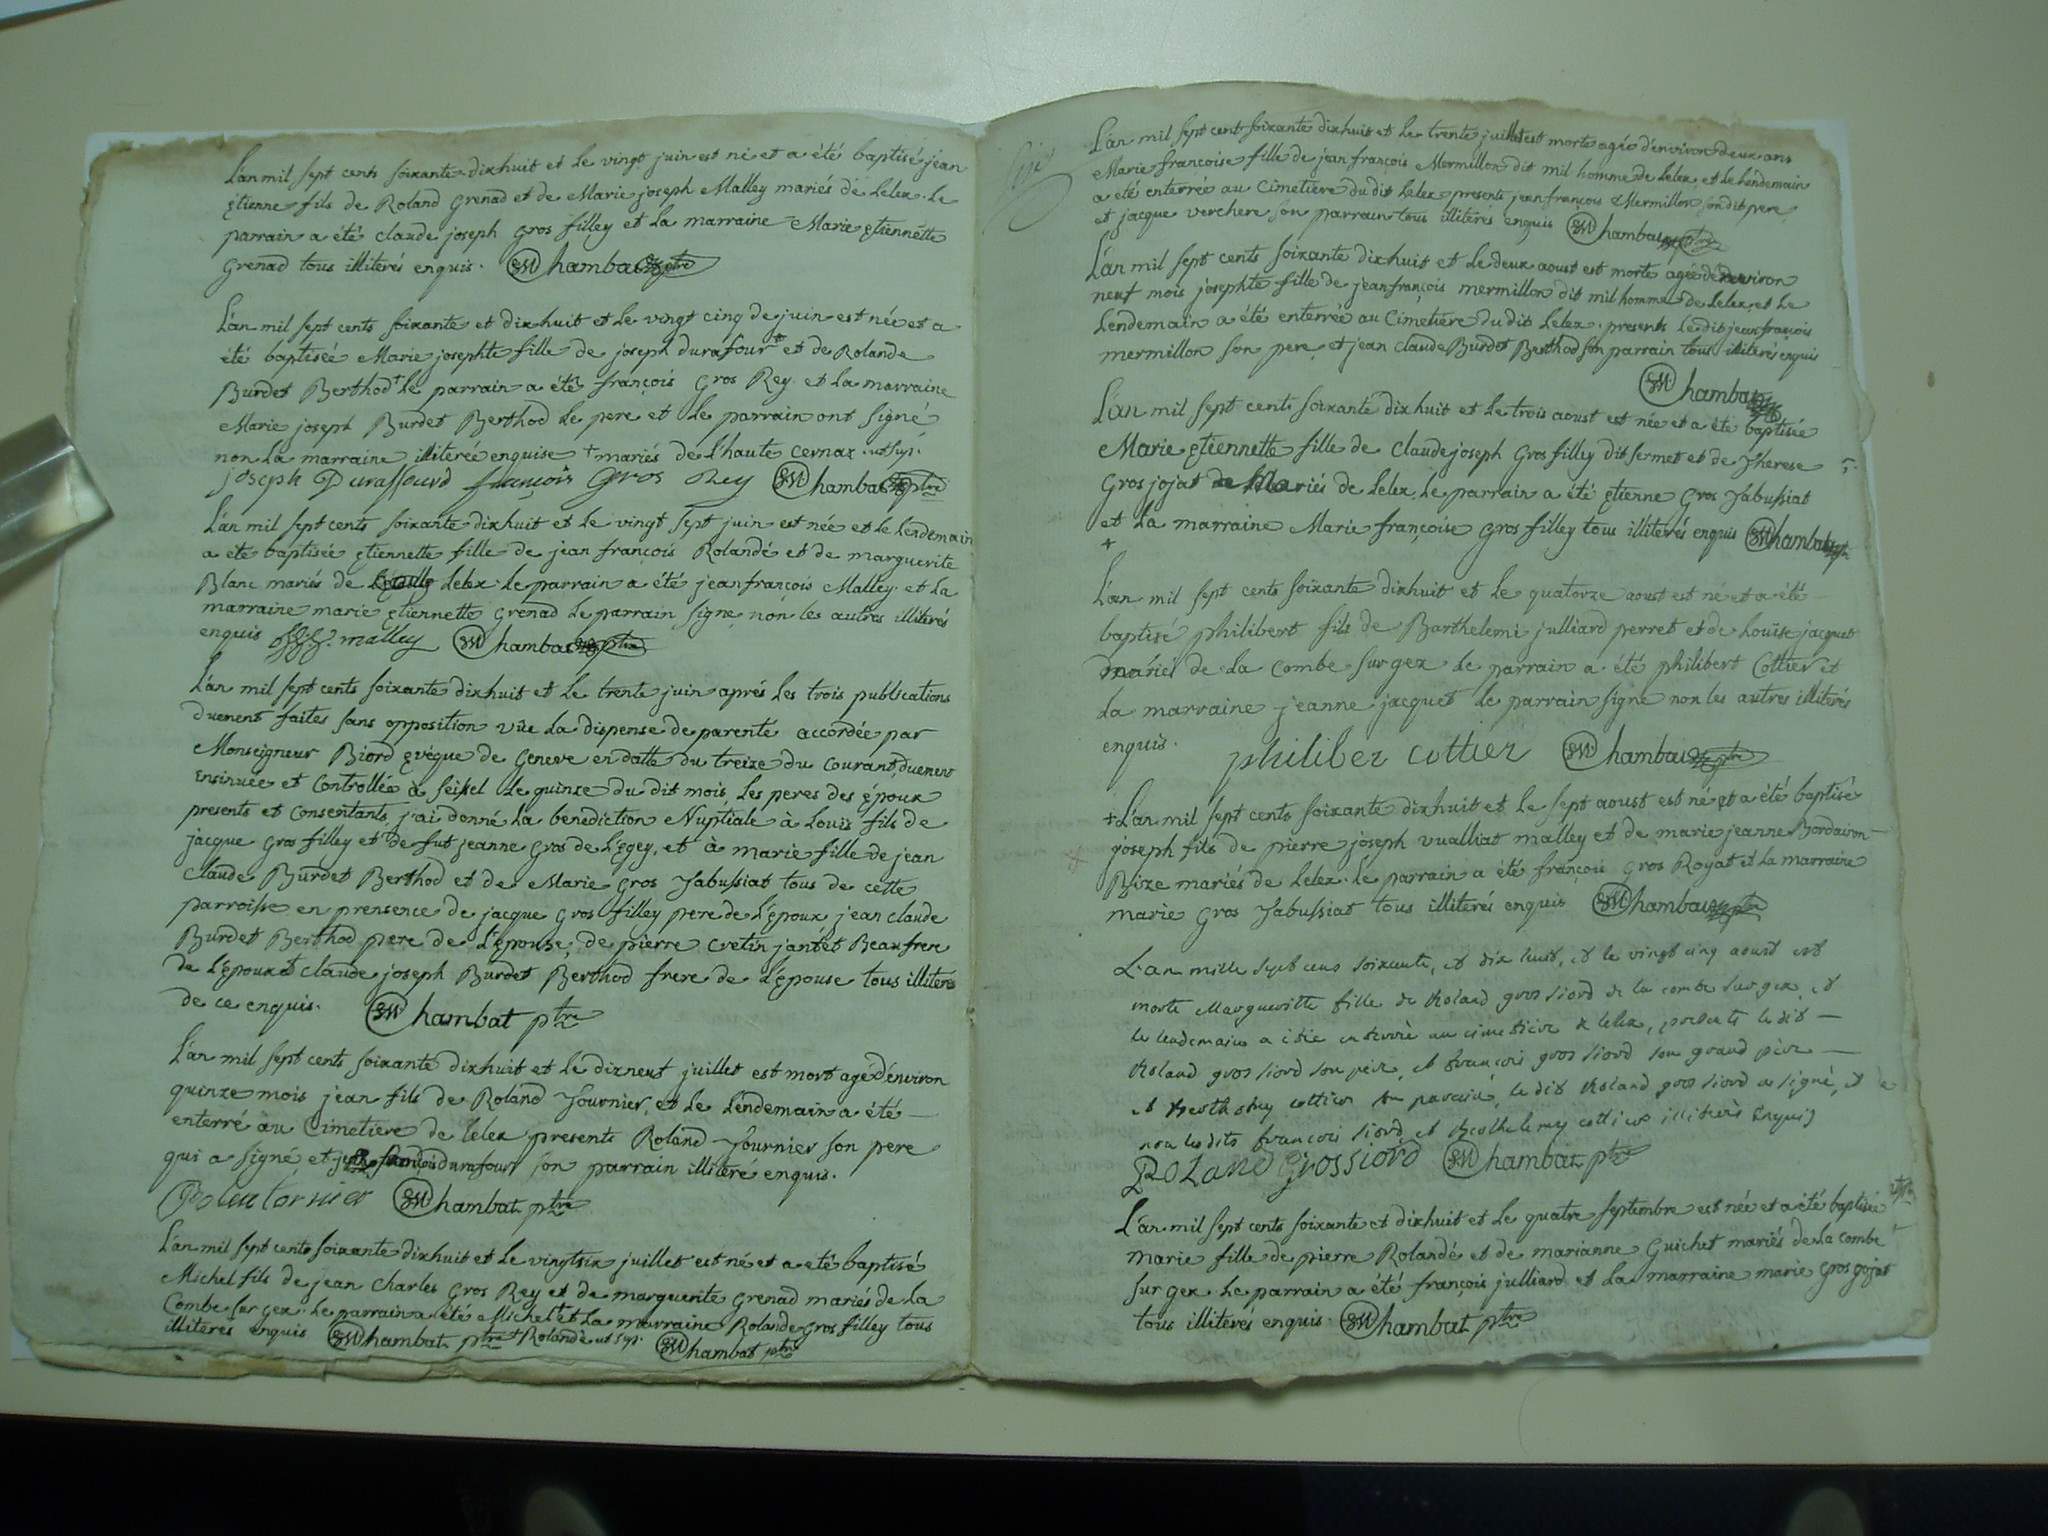 L'an mil sept cents soixante dixhuit et le vingt juin est né et a été baptisé jean
Etienne fils de Roland Grenad et de Marie joseph Malley mariés de Lelex. Le
parrain a été claude joseph gros filley et la marraine Marie Etiennette
Grenad tous illiterés enquis. Chambat ptre
L'an mil sept cents soixante et dixhuit et le vingt cinq de juin est née et a
été baptiseé Marie josephte fille de joseph durafour + et de Rolande
Burdet Berthod + le parrain a été françois Gros Rey et la marraine
Marie joseph Burdet Berthod le pere et le parrain ont signé
non la marraine illiterée enquise + mariés de l'haute cernaz
joseph Duraffourd françois gros Rey Chambat ptre
L'an mil sept cents soixante dixhuit et le vingt sept juin est née et le lendemain
a été baptisée Etiennette fille de jean françois Rolandé et de marguerite
Blanc mariés de Lelex. le parrain a été jean françois Malley et la
marraine marie Etiennette Grenad le parrain signe non les autres illiterés
enquis malley Chambat ptre
L'an mil sept cents soixante dixhuit et le trente juin aprés les trois publications
duement faites sans opposition vûe la dispense de parenté accordée par
Monseigneur Biord Evéque de Geneve en datte du treize du courant, duement
ensinuée et controllée à seissel le quinze du dit mois, les peres des époux
presents et consentants, j'ai donné la benediction Nuptiale à Louis fils de
jacque gros filley et de fut jeanne gros de L'Egey, et à marie fille de jean
claude Burdet Berthod et de Marie gros Jabussiat tous de cette
parroisse en prensence de jacque gros filley pere de l'époux jean claude
Burdet Berthod pere de l'épouse, de pierre cretin jantet Beaufrere
de l'époux et claude joseph Burdet Berthod frere de l'épouse tous illiterés
de ce enquis. Chambat ptre
L'an mil sept cents soixante dixhuit et le dixneuf juillet est mort agé d'environ
quinze mois jean fils de Roland Tournier, et le lendemain a été
enterré au Cimetiere de lelex presents Roland Tournier son pere
qui a signé, et durafour son parrain illiteré enquis.
Chambat ptre
L'an mil sept cents soixante dixhuit et le vingtsix juillet est né et a été baptisé
Michel fils de jean charles Gros Rey et de marguerite Grenad mariés de la
Combe sur gex. le parrain a été Michel + et la marraine Rolande gros filley tous
illiterés enquis Chambat ptre + Rolandé ut sup. Chambat ptre
L'an mil sept cent soixante dixhuit et le trente juillet est morte agée d'environ deux ans
Marie françoise fille de jean françois Mermillon dit mil homme de Lelex et le lendemain
a été enterrée au Cimetiere du dit Lelex presents jean françois Mermillon son dit pere,
et jacque verchere son parrain tous illiterés enquis Chambat ptre
L'an mil sept cents soixante dixhuit et le deux aoust est morte agée d'environ
neuf mois josephte fille de jean françois mermillon dit mil homme de Lelex, et le
lendemain a été enterrée au Cimetiere du dit Lelex. presents le dit jean françois
mermillon son pere, et jean claude Burdet Berthod son parrain tous illiterés enquis
Chambat
L'an mil sept cents soixante dixhuit et le trois aoust est née et a été baptisée
Marie Etiennette fille de claude joseph Gros filley dit fermet et de Therese
Gros jojat mariés de Lelex, le parrain a été Etienne Gros Jabussiat
et la marraine Marie françoise Gros filley tous illiterés enquis Chambat
+
L'an mil sept cents soixante dixhuit et le quatorze aoust est né et a été
baptisé philibert fils de Barthelemi julliard perret et de Louise jacquet
mariés de la Combe sur gex le parrain a été philibert Cottier et
la marraine jeanne jacquet le parrain signe non les autres illiterés
enquis. philiber cottier Chambat ptre
+ L'an mil sept cents soixante dixhuit et le sept aoust est né et a été baptisé
joseph fils de pierre joseph vualliat malley et de marie jeanne Bordairon
Bize mariés de Lelex. le parrain a été françois Gros Royat et la marraine
marie Gros Jabussiat tous illiterés enquis Chambat ptre
L'an mille sept cens soixante, et dix huit, et le vingt cinq aoust est
morte Marguerithe fille de Roland gros siord de la combe sur gex, et
le lendemain a été enterrée au cimetière de lelex, presents le dit
Roland gros siord son père, et françois gros siord son grand père
et Berthelemy cottier son parain, le dit Roland gros siord a signé, et
non les dits françois siord et Berthelemy cottier illiterés Enquis
Roland Grossiord Chambat ptre
L'an mil sept cents soixante et dixhuit et le quatre septembre est née et a été baptisée
Marie fille de pierre Rolandé et de marianne Guichet mariés de la Combe
sur gex le parrain a été françois julliard et la marraine marie Gros gojat
tous illiterés enquis Chambat ptre